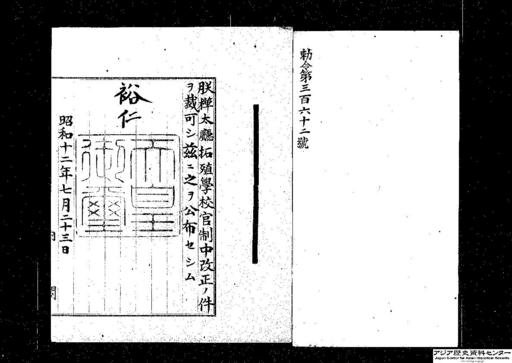 朕樺太廳拓殖學校官制中改正ノ件
ヲ裁可シ茲ニ之ヲ公布セシム
裕仁
天皇
御璽
昭和十二年七月二十三日
勅令第三百六十二號
アジア歴史資料センター
Japan Center for Asian Historical Records